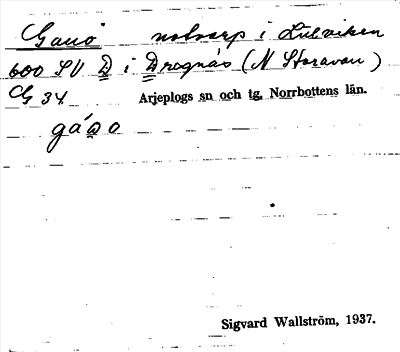 Gauö notvarp i Lulviken
600 SV D i Dragnäs (N Storavan)
G 34 Arjeplogs sn och tg. Norrbottens län.
gáɷo
Sigvard Wallström, 1937.